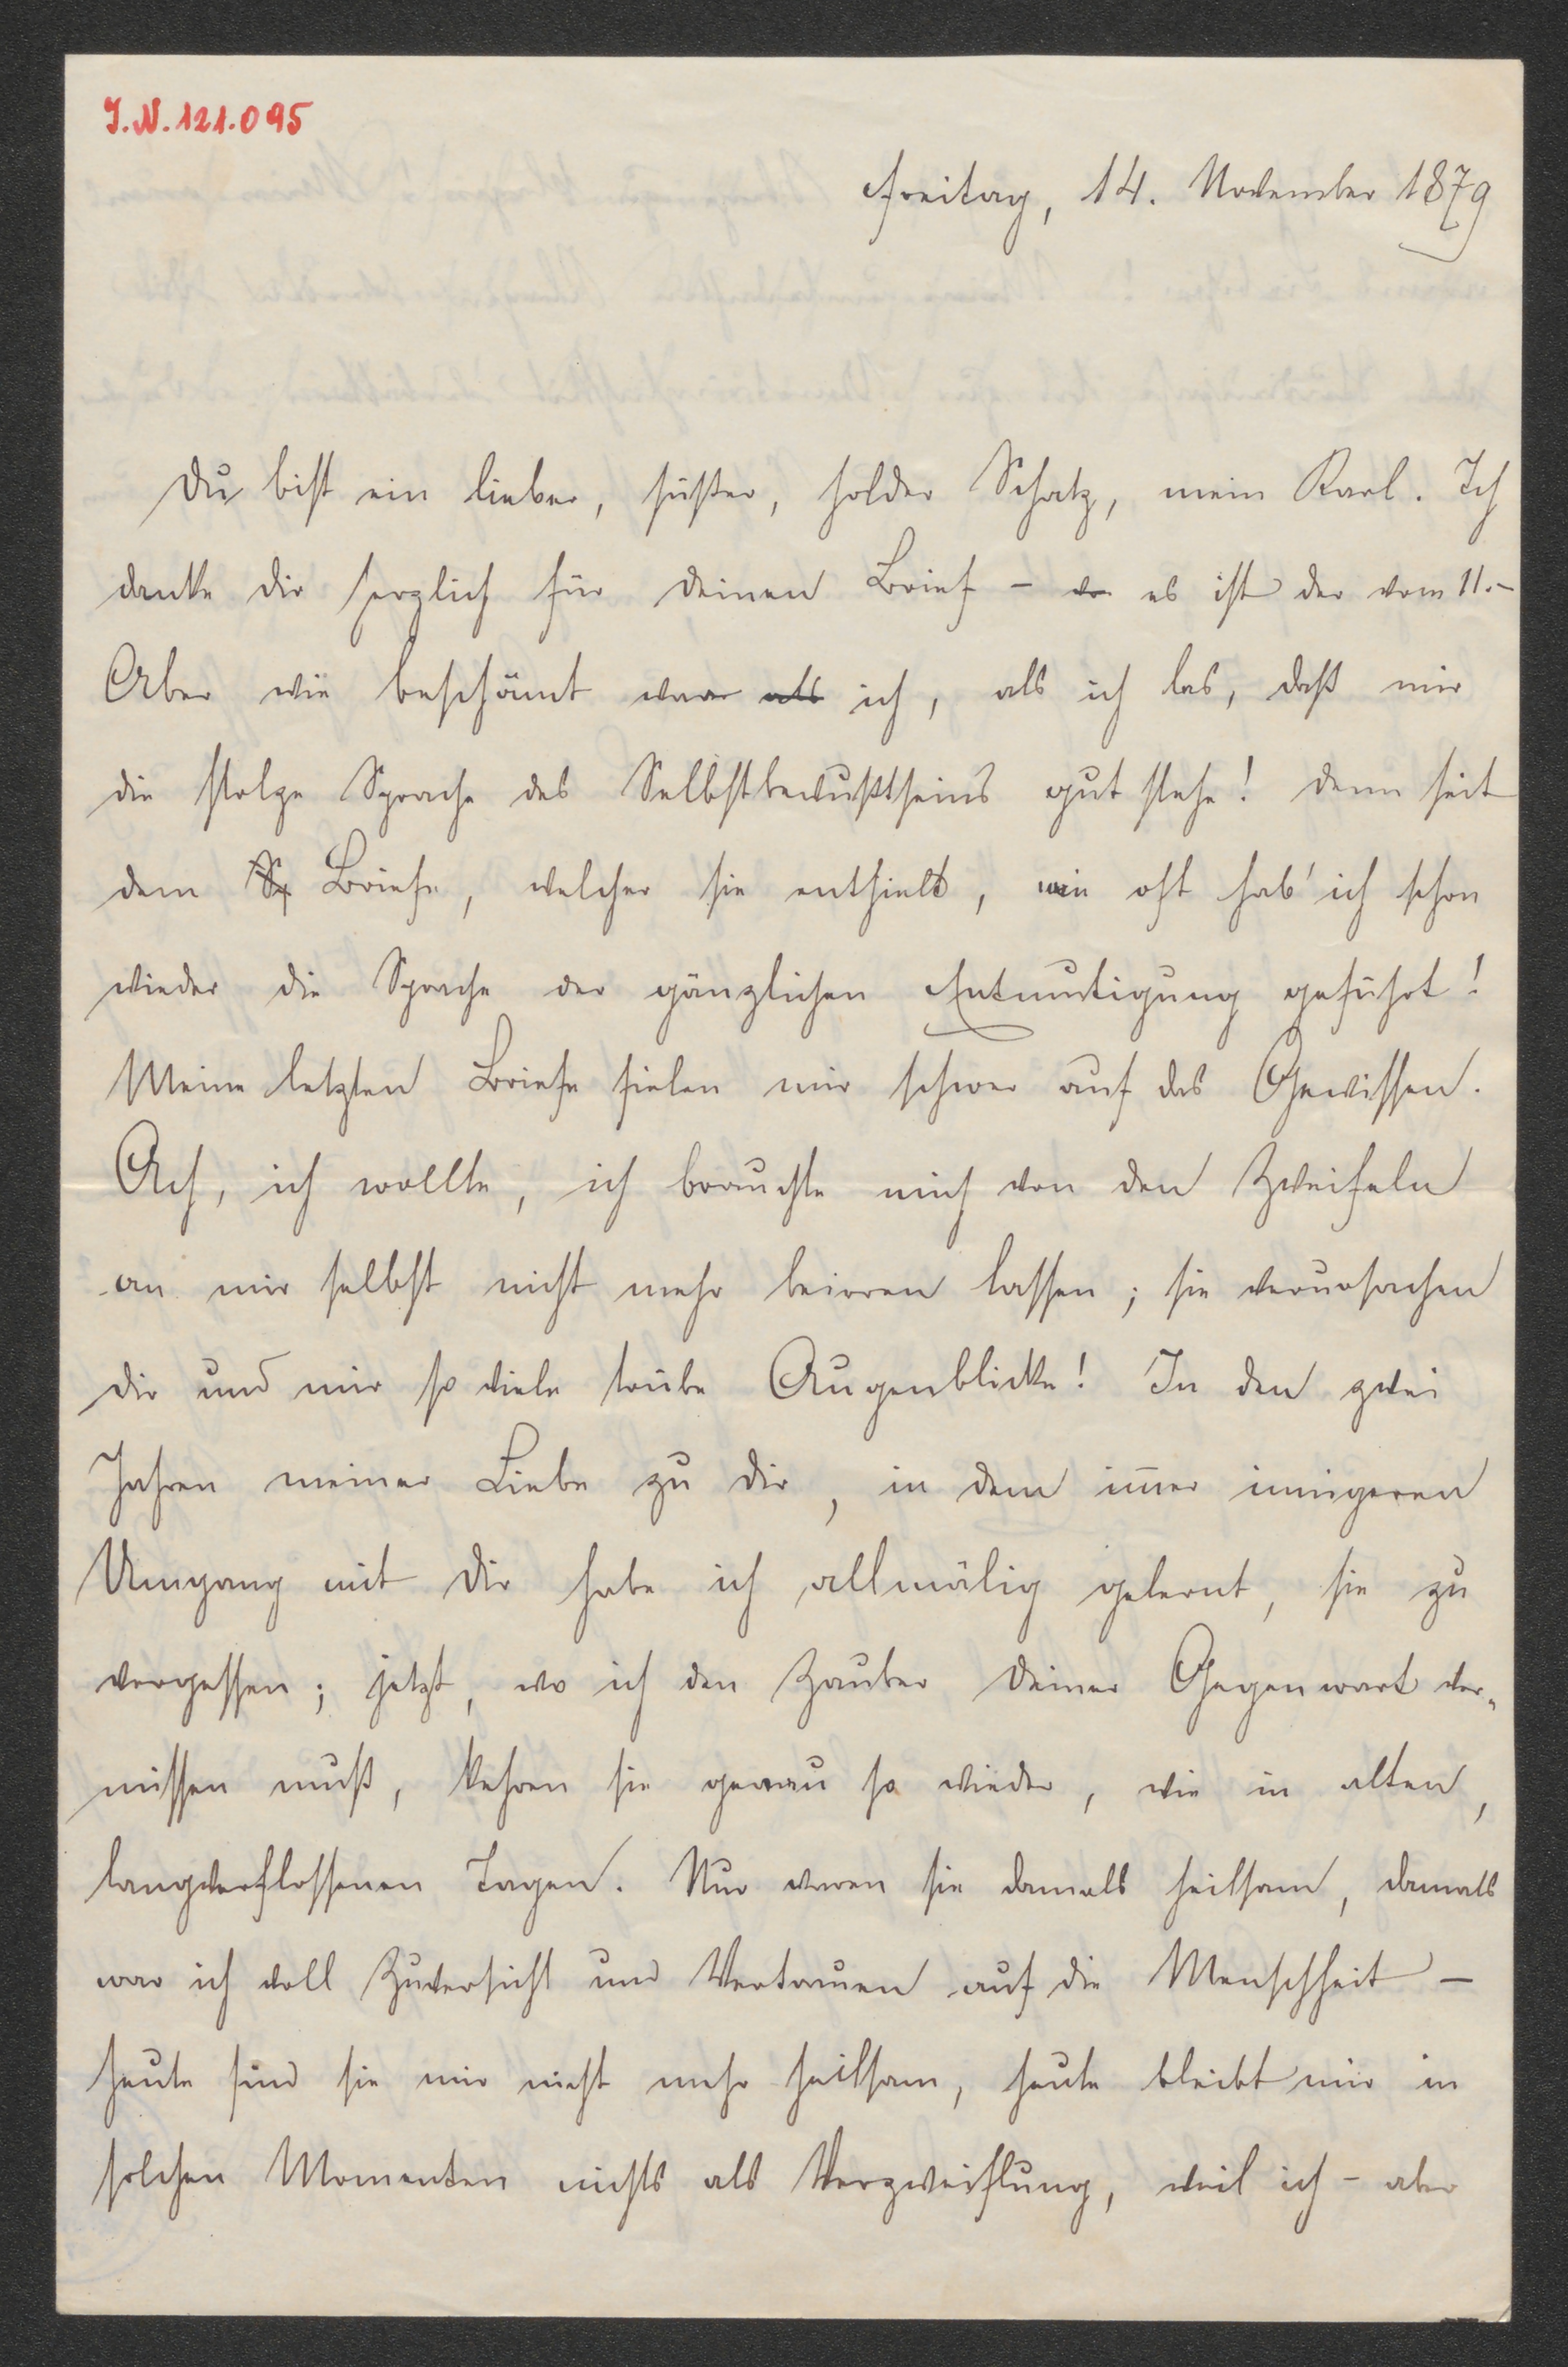 I.N. 121.095
Freitag, 14. November 1879
Du bist ein lieber, süßer, holder Schatz, mein Karl. Ich
danke dir herzlich für deinen Brief – es ist der vom 11. –
Aber wie beschämt war als ich, als ich las, daß mir
die stolze Sprache des Selbstbewußtseins gut stehe! denn seit
dem Sp Briefe, welcher sie enthielt, wie oft hab' ich schon
wieder die Sprache der gänzlichen Entmutigung geführt!
Meine letzten Briefe fielen mir schwer auf das Gewissen.
Ach, ich wollte, ich brauchte mich von den Zweifeln
an mir selbst nicht mehr beirren lassen; sie verursachen
dir und mir so viele trübe Augenblicke! In den zwei
Jahren meiner Liebe zu dir, in dem im̅er innigeren
Umgang mit dir habe ich allmälig gelernt, sie zu
vergessen; jetzt, wo ich den Zauber deiner Gegenwart ver=
missen muß, kehren sie genau so wieder, wie in alten,
langverflossenen Tagen. Nur waren sie damals heilsam, damals
war ich voll Zuversicht und Vertrauen auf die Menschheit –
heute sind sie mir nicht mehr heilsam, heute bleibt mir in
solchen Momenten nichts als Verzweiflung, weil ich – aber